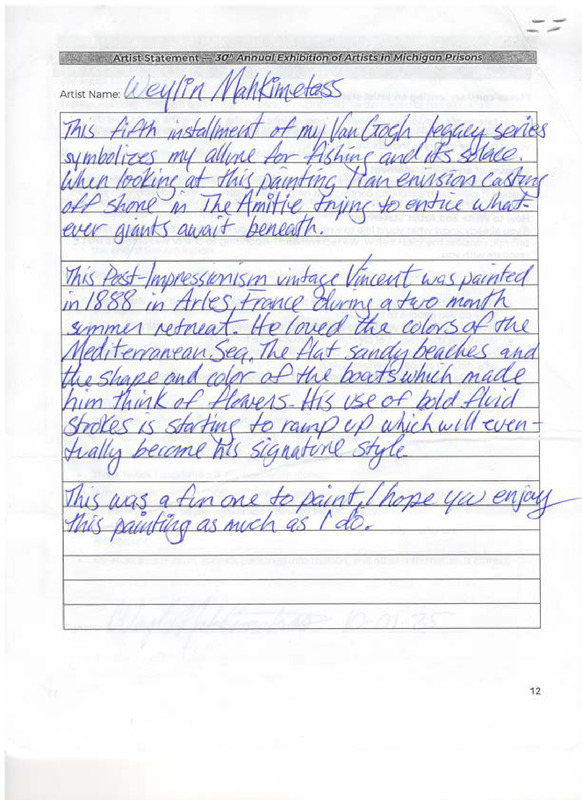 Artist Statement — 30th Annual Exhibition of Artists in Michigan Prisons
Artist Name: Weylin Mahkimetass
This fifth installment of my Van Gogh legacy series
symbolizes my allure for fishing and it's solace.
When looking at this painting I can envision casting
off shore in The Amitie trying to entice what-
ever giants await beneath.
This Post-Impressionism vintage Vincent was painted
in 1888 in Arles, France during a two month
summer retreat. He loved the colors of the
Mediterranean Sea, The flat sandy beaches and
the shape and color of the boats which made
him think of flowers. His use of bold fluid
strokes is starting to ramp up which will even-
tually become his signature style
This was a fun one to paint, I hope you enjoy
this painting as much as I do.
12